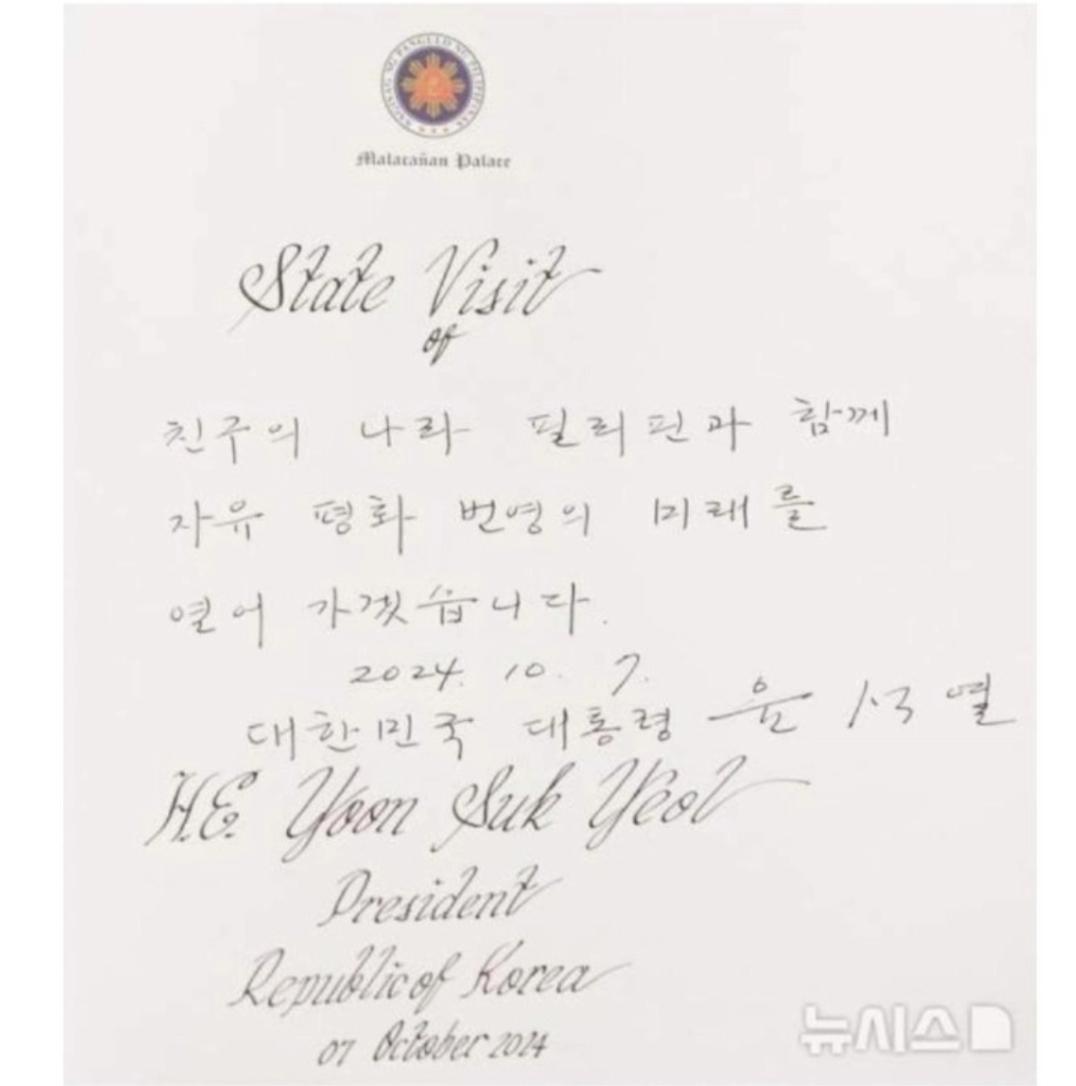 Malacañan Palace
State Visit
of
친구의 나라 필리핀과 함께
자유 평화 번영의 미래를
열어 가겠습니다.
2024. 10. 7.
대한민국 대통령 윤석열
H.E. Yoon Suk Yeol
President
Republic of Korea
07 October 2024
뉴시스